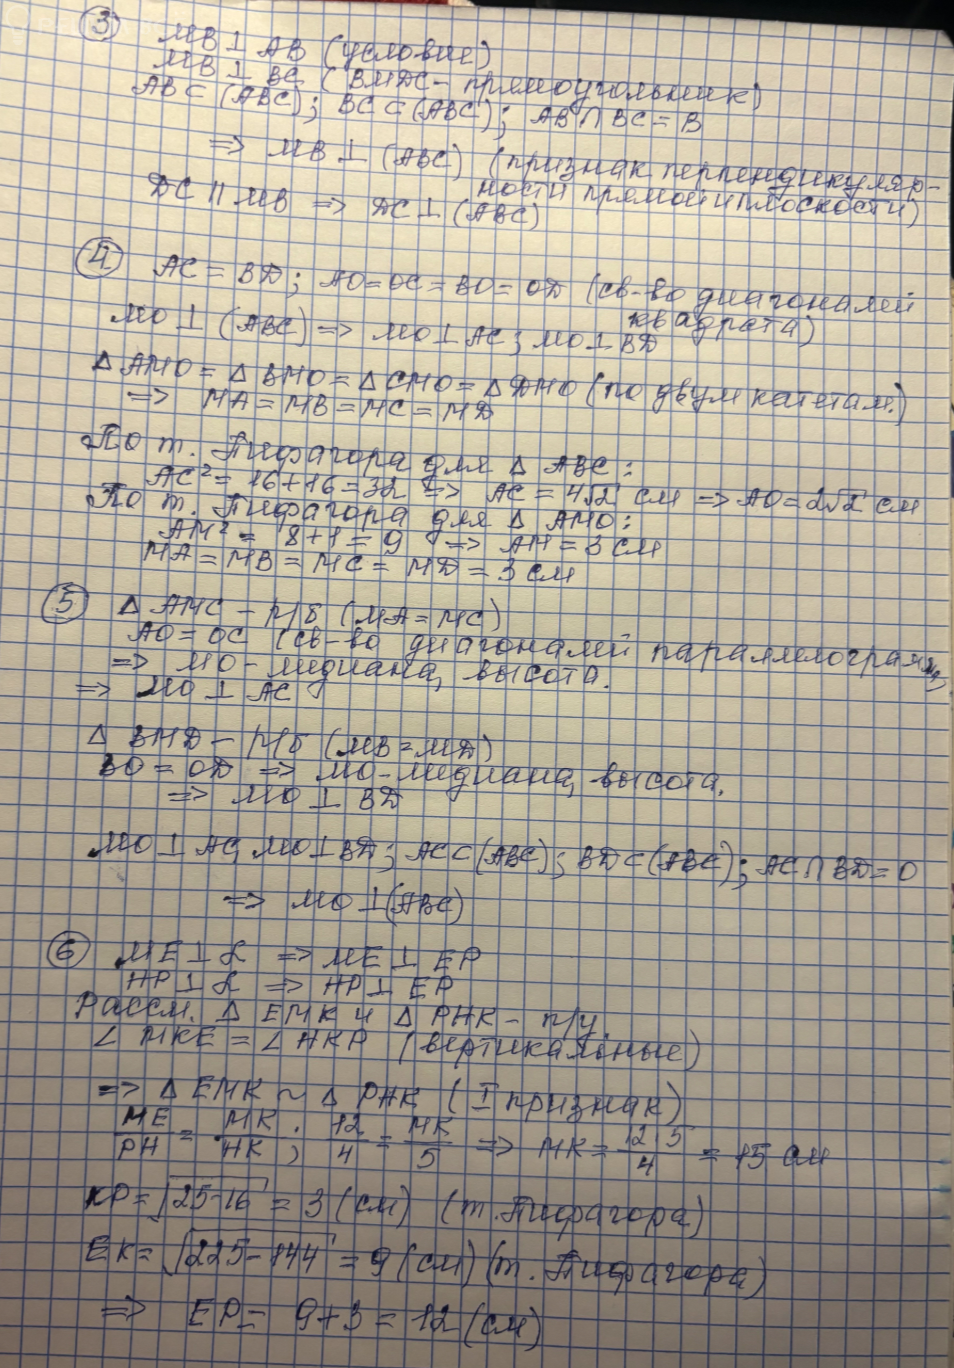 ③ MB ⊥ AB (условие)
MB ⊥ BC (BMDC - прямоугольник)
AB ⊂ (ABC); BC ⊂ (ABC); AB ∩ BC = B
=> MB ⊥ (ABC) (признак перпендикуляр-
ности прямой и плоскости)
DC || MB => DC ⊥ (ABC)
④ AC = BD; AO = OC = BO = OD (св-во диагоналей
квадрата)
MO ⊥ (ABC) => MO ⊥ AC; MO ⊥ BD
Δ AMO = Δ BMO = Δ CMO = Δ DMO (по двум катетам.)
=> MA = MB = MC = MD
По т. Пифагора для Δ ABC:
AC² = 16 + 16 = 32 => AC = 4√2 см => AO = 2√2 см
По т. Пифагора для Δ AMO:
AM² = 8 + 1 = 9 => AM = 3 см
MA = MB = MC = MD = 3 см
⑤ Δ AMC - р/б (MA = MC)
AO = OC (св-во диагоналей параллелограмма)
=> MO - медиана, высота.
=> MO ⊥ AC
Δ BMD - р/б (MB = MD)
BO = OD => MO - медиана, высота.
=> MO ⊥ BD
MO ⊥ AC, MO ⊥ BD; AC ⊂ (ABC); BD ⊂ (ABC); AC ∩ BD = O
=> MO ⊥ (ABC)
⑥ ME ⊥ α => ME ⊥ EP
HP ⊥ α => HP ⊥ EP
Рассм. Δ EMK и Δ PHK - п/у.
∠ MKE = ∠ HKP (вертикальные)
=> Δ EMK ~ Δ PHK (I признак)
ME/PH = MK/HK; 12/4 = MK/5 => MK = 12·5/4 = 15 см
KP = √25-16 = 3 (см) (т. Пифагора)
EK = √225-144 = 9 (см) (т. Пифагора)
=> EP = 9 + 3 = 12 (см)